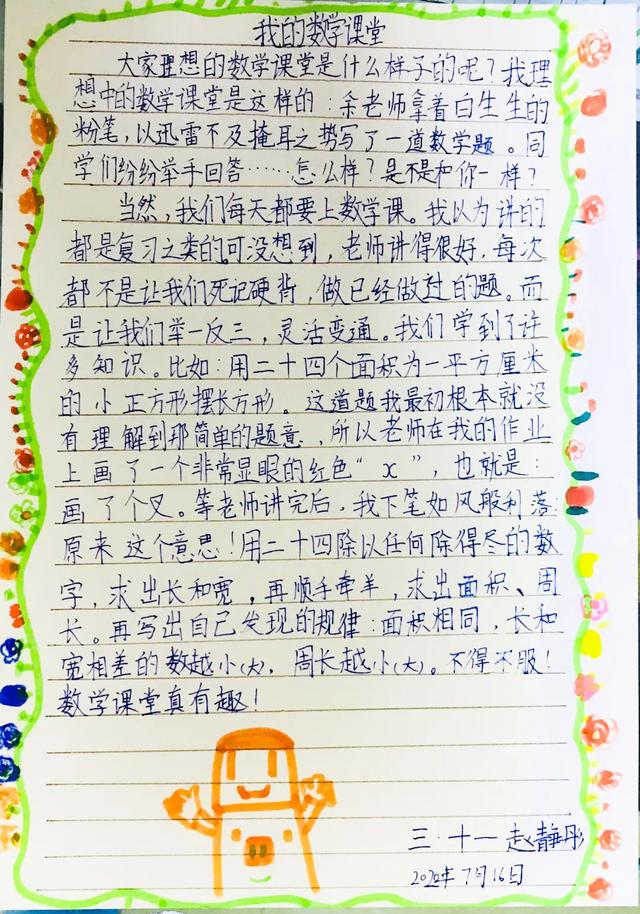 我的数学课堂
大家理想的数学课堂是什么样子的呢？我理
想中的数学课堂是这样的：余老师拿着白生生的
粉笔，以迅雷不及掩耳之势写了一道数学题。同
学们纷纷举手回答……怎么样？是不是和你一样？
当然，我们每天都要上数学课。我以为讲的
都是复习之类的可没想到，老师讲得很好，每次
都不是让我们死记硬背，做已经做过的题。而
是让我们举一反三，灵活变通。我们学到了许
多知识。比如：用二十四个面积为一平方厘米
的小正方形摆长方形。这道题我最初根本就没
有理解到那简单的题意，所以老师在我的作业
上画了一个非常显眼的红色“x”，也就是：
画了个叉。等老师讲完后，我下笔如风般利落
原来这个意思！用二十四除以任何除得尽的数
字，求出长和宽，再顺手牵羊，求出面积、周
长。再写出自己发现的规律：面积相同，长和
宽相差的数越小(大)，周长越小(大)。不得不服！
数学课堂真有趣！
三·十一 赵静彤
2020年7月16日